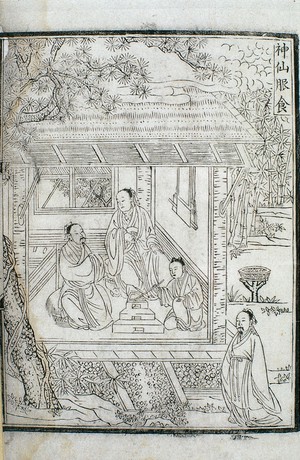 神仙服食